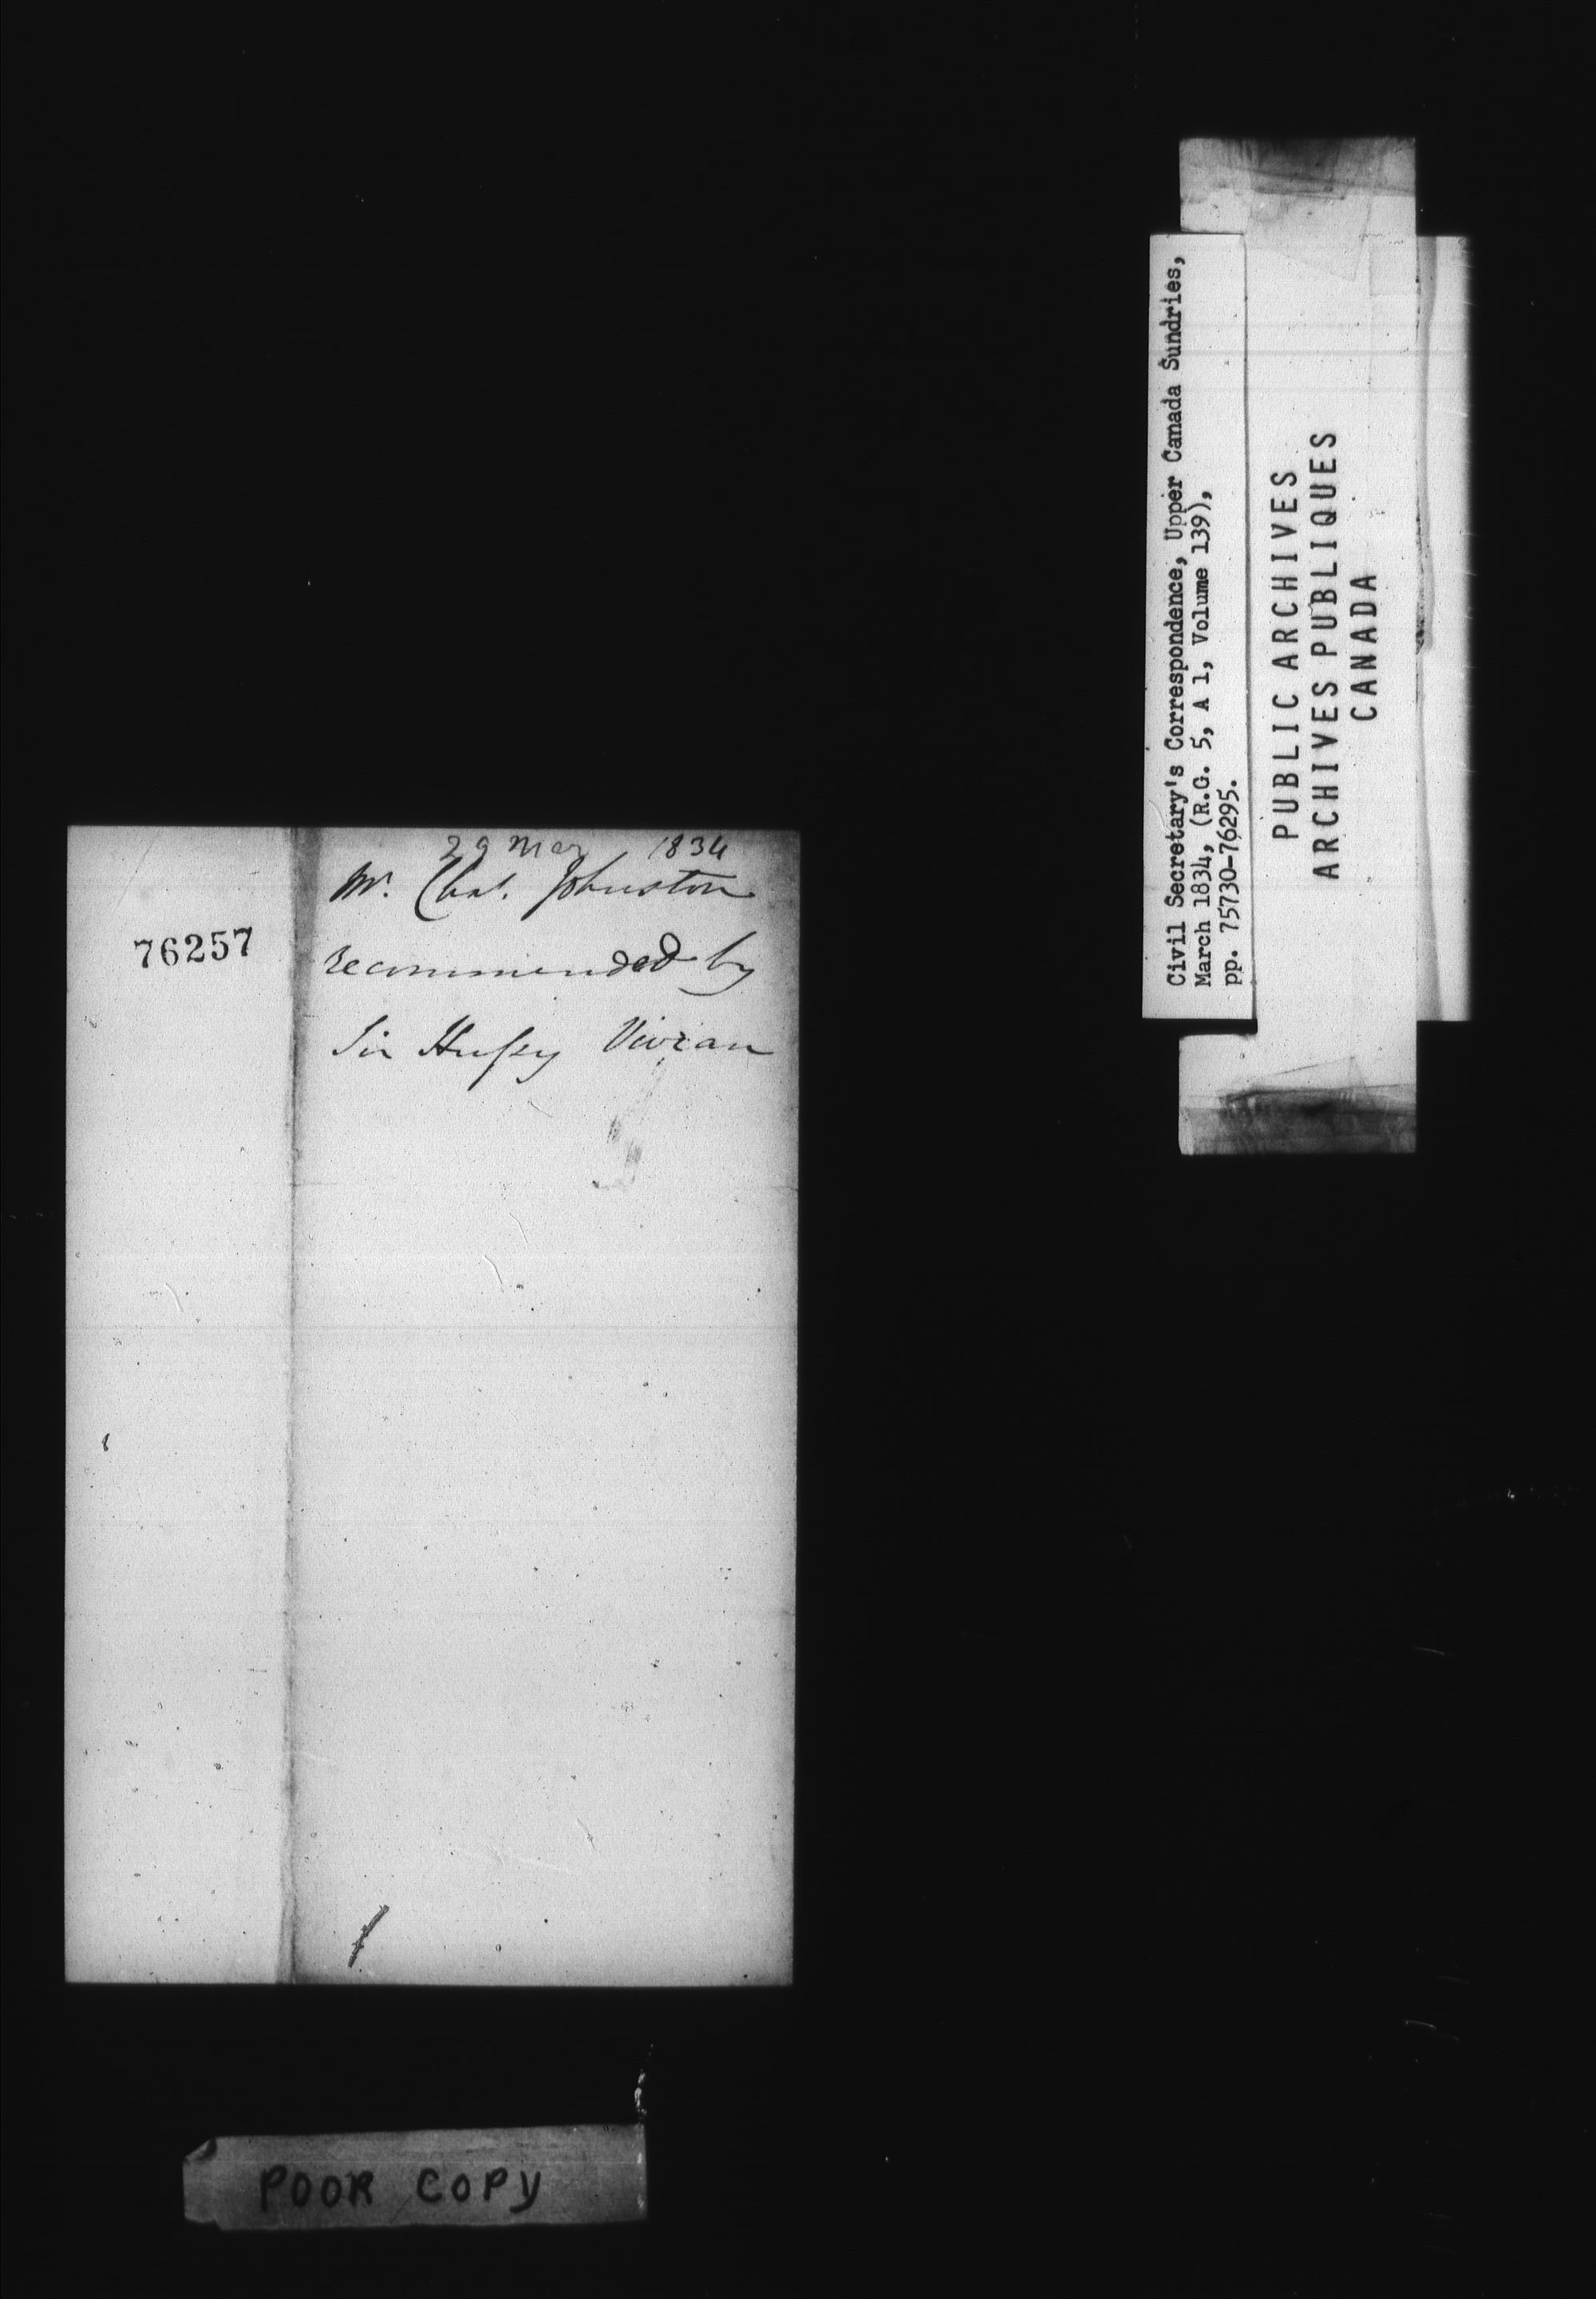 29 Mar 1834
Mr. Chas. Johnston
76257
recommended by
Sir Hussey Vivian
POOR COPY
Civil Secretary's Correspondence, Upper Canada Sundries,
March 1834, (R.G. 5, A 1, Volume 139),
pp. 75730-76295.
PUBLIC ARCHIVES
ARCHIVES PUBLIQUES
CANADA